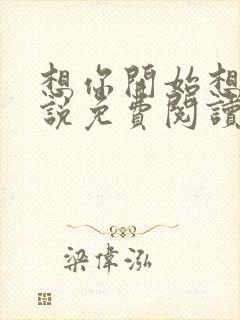 想你開始想
說免費閱讀
梁偉泓